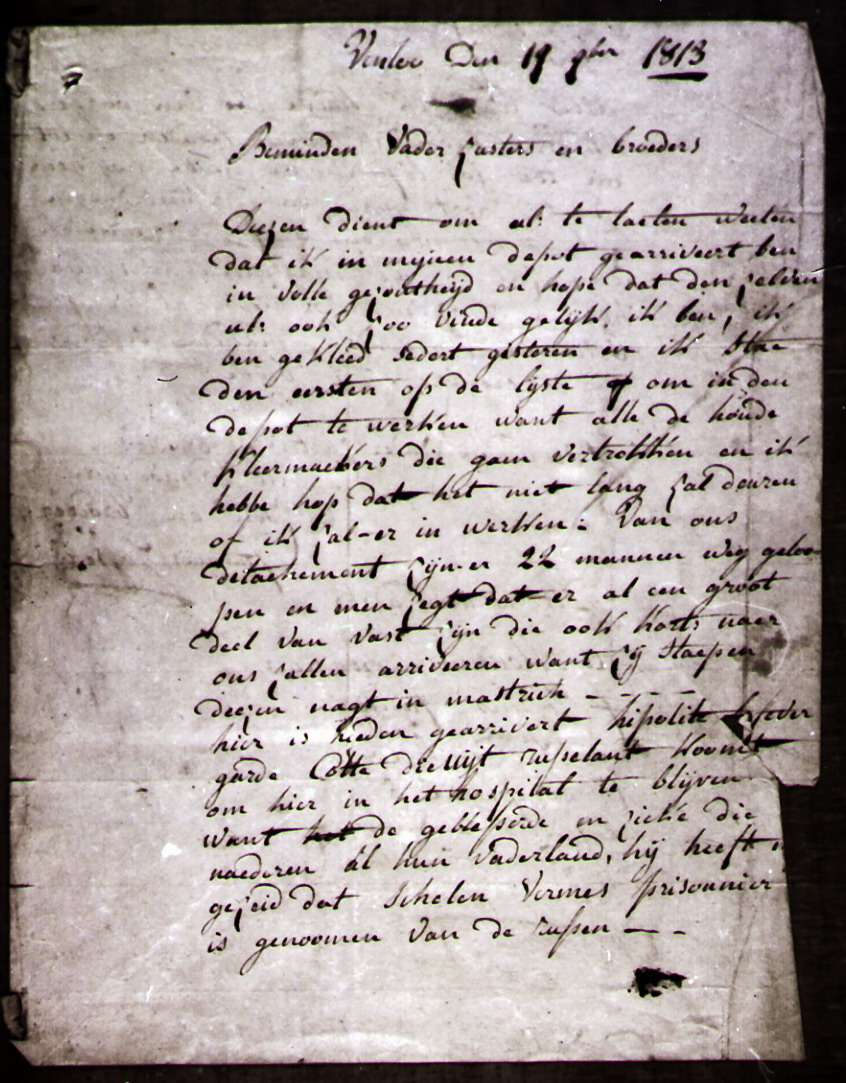 Venloo Den 19 9ber 1813
Beminden Vader Zusters en broeders
Deezen dient om ul: te laeten weeten
dat ik in mijnen depot gearriveert ben
in volle gezontheyd en hope dat den zelven
ul: ook zoo vinde gelijk ik ben, ik
ben gekleed sedert gisteren en ik stae
den eersten op de lyste om in den
depot te werken want alle de houde
kleermaekers die gaen vertrekken en ik
hebbe hop dat het niet lang zal deuren
of ik zal-er in werken: Van ons
detachement zijn-er 22 mannen weg geloo
pen en men zegt dat-er al een groot
deel van vast zijn die ook korts naer
ons zullen arriveeren want zij staepen
deezen nagt in mastrich - - - -
hier is heden gearrivert hipolite
garde Cotte die uijt ruslant koomt
om hier in het hospital te blijven
want het de geblesserde en zieke die
naederen al hun vaderland, hij heeft
gezeid dat schelen Vermes prisounier
is genoomen van de russen — -